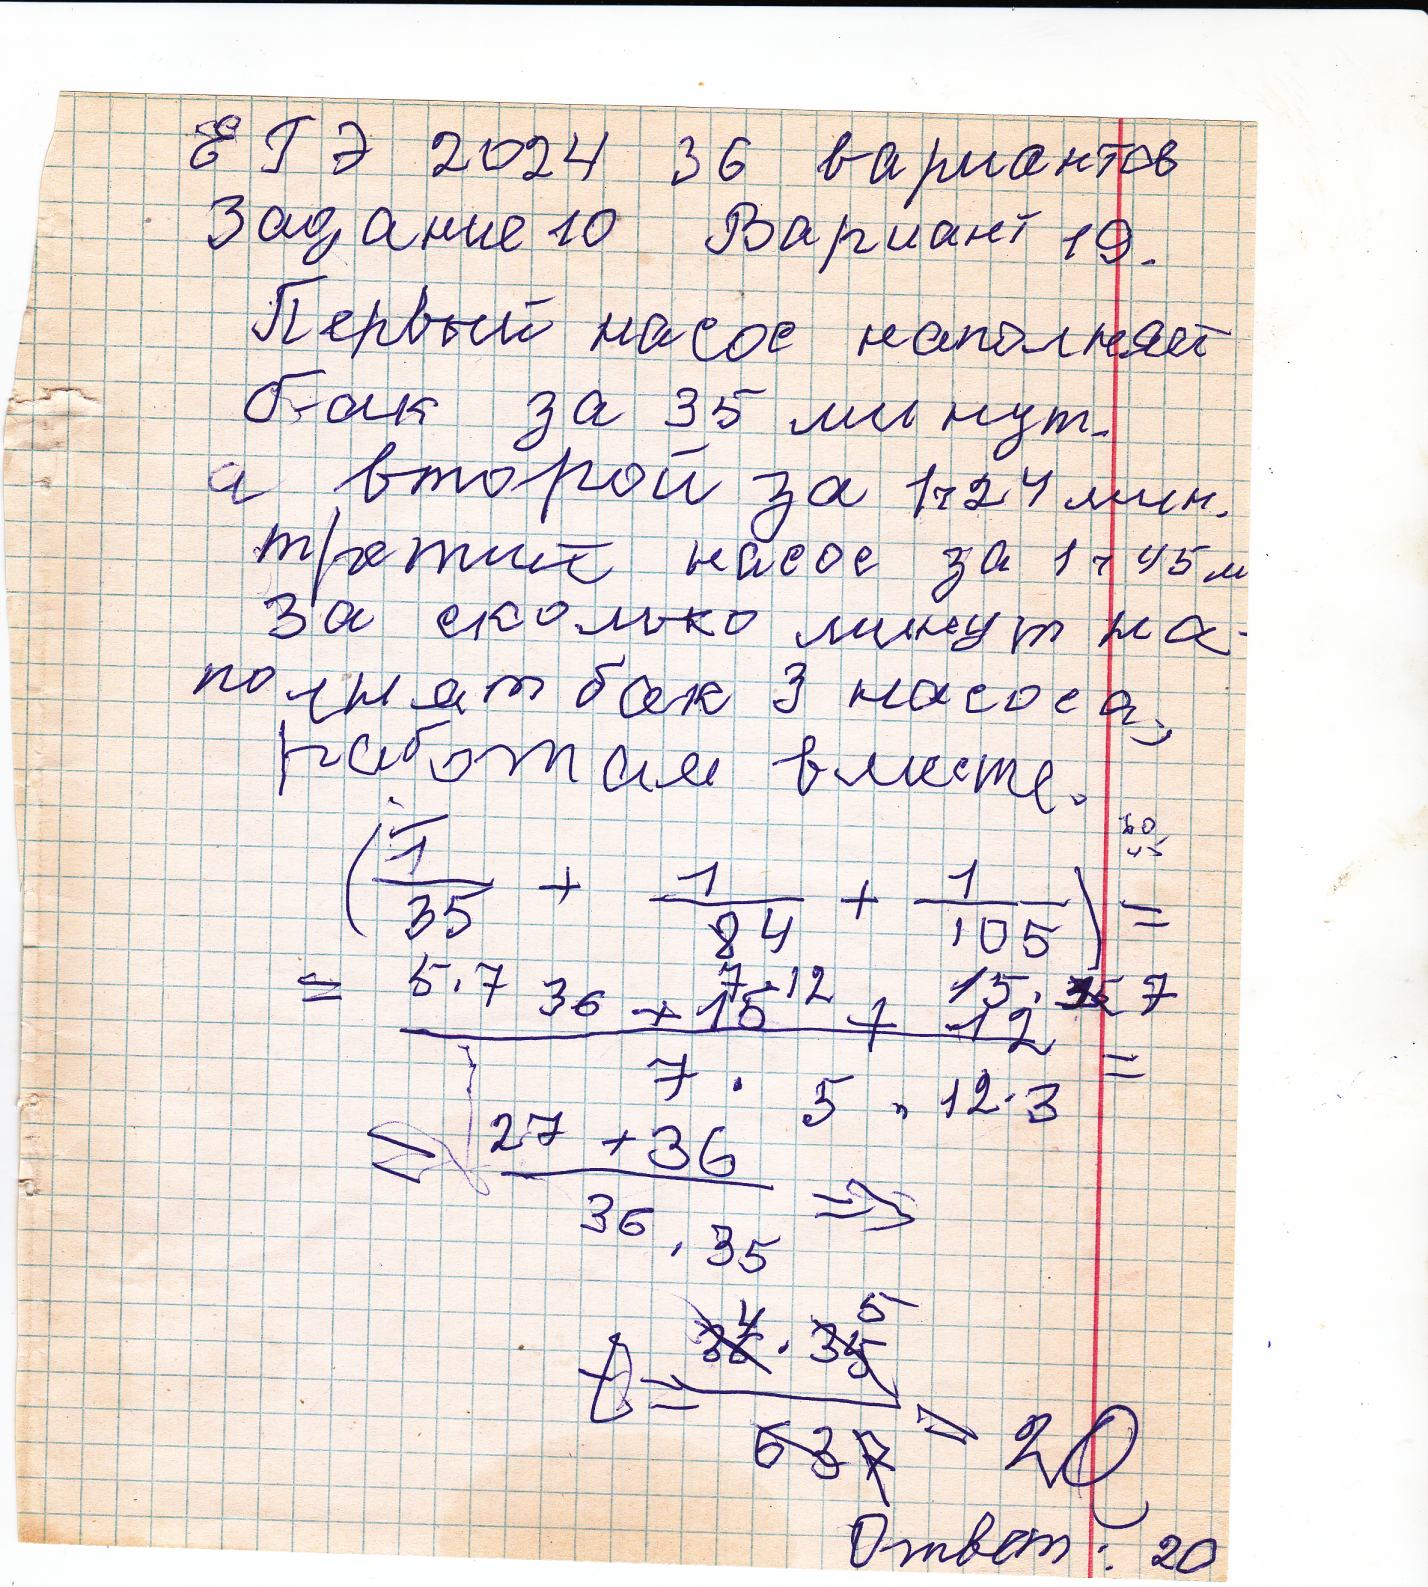 ЕГЭ 2024 36 вариантов
Задание 10 Вариант 19.
Первый насос наполняет
бак за 35 минут.
а второй за 1ч 24 мин.
третий насос за 1ч 45 м
За сколько минут на-
полнят бак 3 насоса,
работая вместе.
60
45
(1/35 + 1/84 + 1/105) =
5·7 7·12 15·7
= 36 + 15 + 12 / 7 · 5 · 12·3 =
= 27 + 36 / 36 · 35 =>
4 5
t = 36 · 35 / 63 7 = 20
Ответ: 20